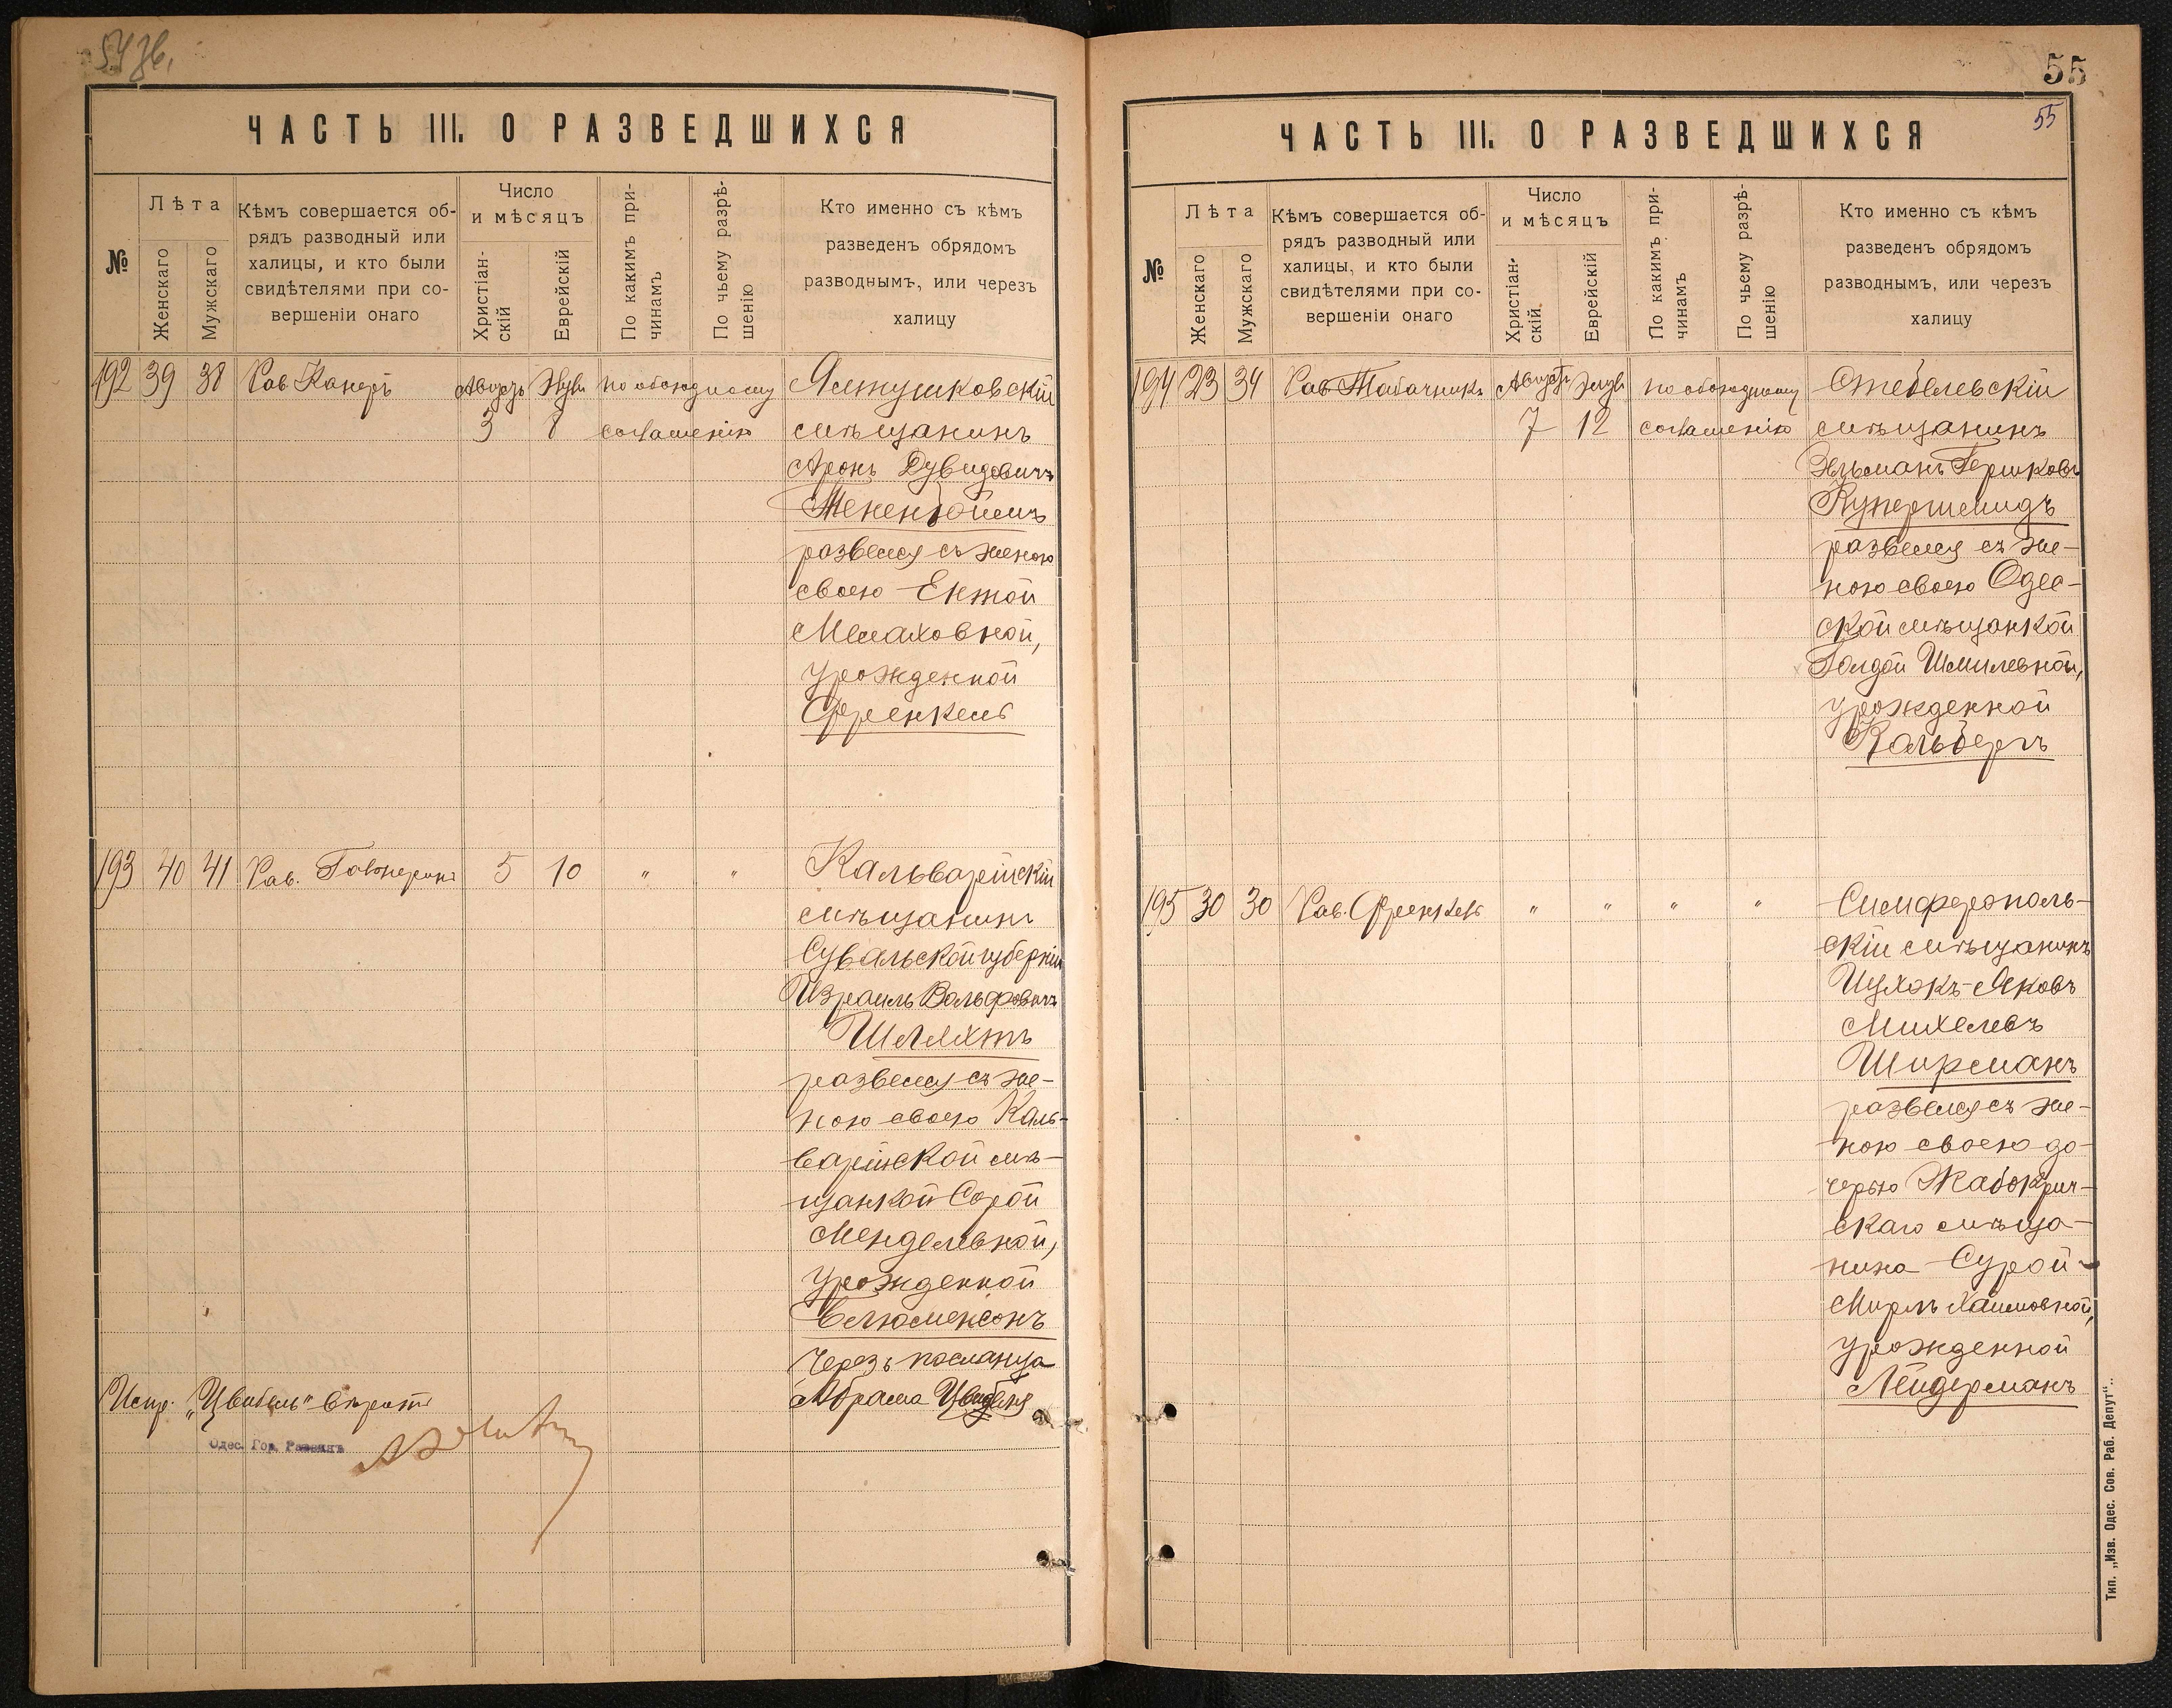 54 зв.
ЧАСТЬ III. О РАЗВЕДШИХСЯ
№
Лѣта
Женскаго
Мужскаго
Кѣмъ совершается об-
рядъ разводный или
халицы, и кто были
свидѣтелями при со-
вершеніи онаго
Число
и мѣсяцъ
Христіан-
скій
Еврейскій
По какимъ при-
чинамъ
По чьему разрѣ-
шенію
Кто именно съ кѣмъ
разведенъ обрядомъ
разводнымъ, или черезъ
халицу
192 39 38 Рав. Канеръ Августъ Элулъ по обоюдному Ялтушковскій
3 8 соглашенію мѣщанинъ
Аронъ Дувидовичъ
развелся съ женою
своею Ентой
Мееаховной,
урожденной
Френкель
193 40 41 Рав. 5 10 " " Кальварійскій
мѣщанинъ
Сувальской губерніи
Израиль Вольфовичъ
Шляхтъ
развелся съ же-
ною своею Каль-
варійской мѣ-
щанкой Сорой
Менделевной,
урожденной
черезъ посланца
Абрама Цвибеля
Испр. „Цвибель" вѣрно
Одес. Гор. Раввинъ
55
55
ЧАСТЬ III. О РАЗВЕДШИХСЯ
№
Лѣта
Женскаго
Мужскаго
Кѣмъ совершается об-
рядъ разводный или
халицы, и кто были
свидѣтелями при со-
вершеніи онаго
Число
и мѣсяцъ
Христіан-
скій.
Еврейскій
По какимъ при-
чинамъ
По чьему разрѣ-
шенію
Кто именно съ кѣмъ
разведенъ обрядомъ
разводнымъ, или черезъ
халицу
194 23 34 Рав. Табачникъ Августъ Элулъ по обоюдному Стеблевскій
7 12 соглашенію мѣщанинъ
Зельманъ Гершковъ
Купершмидъ
развелся съ же-
ною своею Одес-
ской мѣщанкой
Голдой Шмилевной,
урожденной
Кальбергъ
195 30 30 Рав. Френкель " " " " Симферополь-
скій мѣщанинъ
Ицхокъ-Яковъ
Михелевъ
Ширманъ
развелся съ же-
ною своею до-
черью Жабокрич-
скаго мѣща-
нина Сурой-
Мирлъ Хаимовной,
урожденной
Лейдерманъ
Тип. „Изв. Одес. Сов. Раб. Депут".